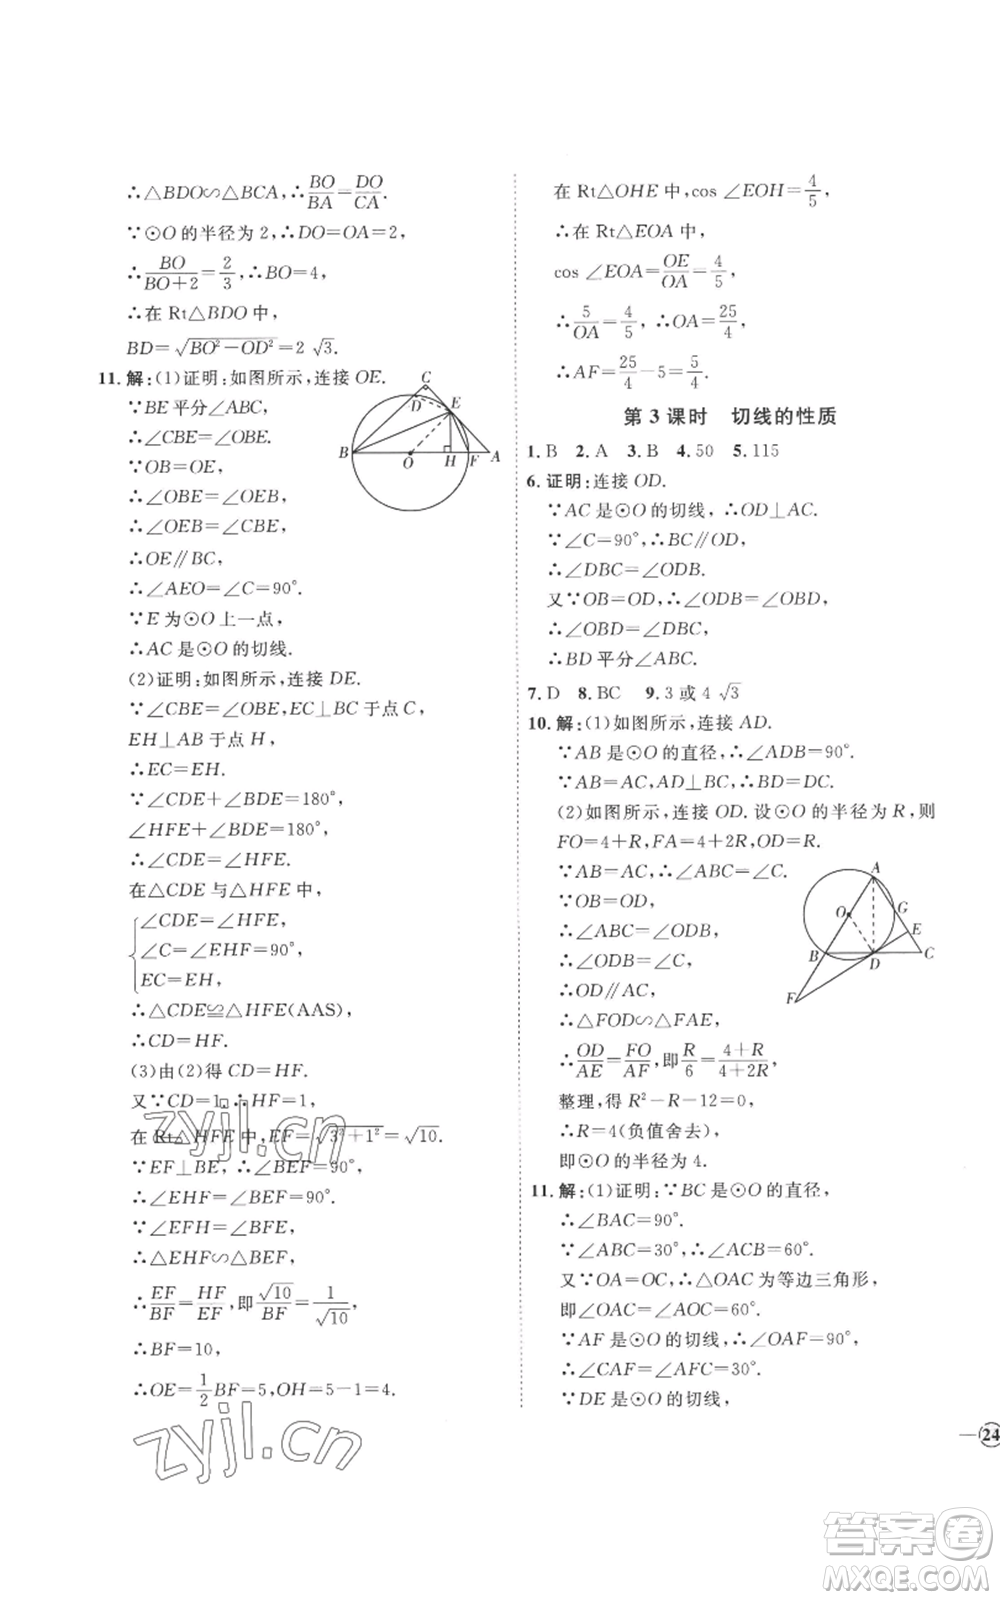 ∴△BDO∽△BCA,∴BO/BA=DO/CA.
∵⊙O的半径为2,∴DO=OA=2,
∴BO/(BO+2)=2/3,∴BO=4,
∴在Rt△BDO中,
BD=√(BO²-OD²)=2√3.
11.解:(1)证明:如图所示,连接OE.
∵BE平分∠ABC,
∴∠CBE=∠OBE.
∵OB=OE,
∴∠OBE=∠OEB,
∴∠OEB=∠CBE,
∴OE∥BC,
∴∠AEO=∠C=90°.
∵E为⊙O上一点,
∴AC是⊙O的切线.
C
D E
B O H F A
(2)证明:如图所示,连接DE.
∵∠CBE=∠OBE,EC⊥BC于点C,
EH⊥AB于点H,
∴EC=EH.
∵∠CDE+∠BDE=180°,
∠HFE+∠BDE=180°,
∴∠CDE=∠HFE.
在△CDE与△HFE中,
∠CDE=∠HFE,
∠C=∠EHF=90°,
EC=EH,
∴△CDE≌△HFE(AAS),
∴CD=HF.
(3)由(2)得CD=HF.
又∵CD=1,∴HF=1,
在Rt△HFE中,EF=√(3²+1²)=√10.
∵EF⊥BE,∴∠BEF=90°,
∴∠EHF=∠BEF=90°.
∵∠EFH=∠BFE,
∴△EHF∽△BEF,
∴EF/BF=HF/EF,即√10/BF=1/√10,
∴BF=10,
∴OE=1/2BF=5,OH=5-1=4.
在Rt△OHE中,cos∠EOH=4/5,
∴在Rt△EOA中,
cos∠EOA=OE/OA=4/5,
∴5/OA=4/5,∴OA=25/4,
∴AF=25/4-5=5/4.
第3课时 切线的性质
1.B 2.A 3.B 4.50 5.115
6.证明:连接OD.
∵AC是⊙O的切线,∴OD⊥AC.
∵∠C=90°,∴BC∥OD,
∴∠DBC=∠ODB.
又∵OB=OD,∴∠ODB=∠OBD,
∴∠OBD=∠DBC,
∴BD平分∠ABC.
7.D 8.BC 9.3或4√3
10.解:(1)如图所示,连接AD.
∵AB是⊙O的直径,∴∠ADB=90°.
∵AB=AC,AD⊥BC,∴BD=DC.
(2)如图所示,连接OD.设⊙O的半径为R,则
FO=4+R,FA=4+2R,OD=R.
∵AB=AC,∴∠ABC=∠C.
∵OB=OD,
∴∠ABC=∠ODB,
∴∠ODB=∠C,
∴OD∥AC,
∴△FOD∽△FAE,
A
O G
E
B D C
F
∴OD/AE=FO/AF,即R/6=(4+R)/(4+2R),
整理,得R²-R-12=0,
∴R=4(负值舍去),
即⊙O的半径为4.
11.解:(1)证明:∵BC是⊙O的直径,
∴∠BAC=90°.
∵∠ABC=30°,∴∠ACB=60°.
又∵OA=OC,∴△OAC为等边三角形,
即∠OAC=∠AOC=60°.
∵AF是⊙O的切线,∴∠OAF=90°,
∴∠CAF=∠AFC=30°.
∵DE是⊙O的切线,
—24
zyjl.cn
zyjl.cn
答案卷
MXQE.COM